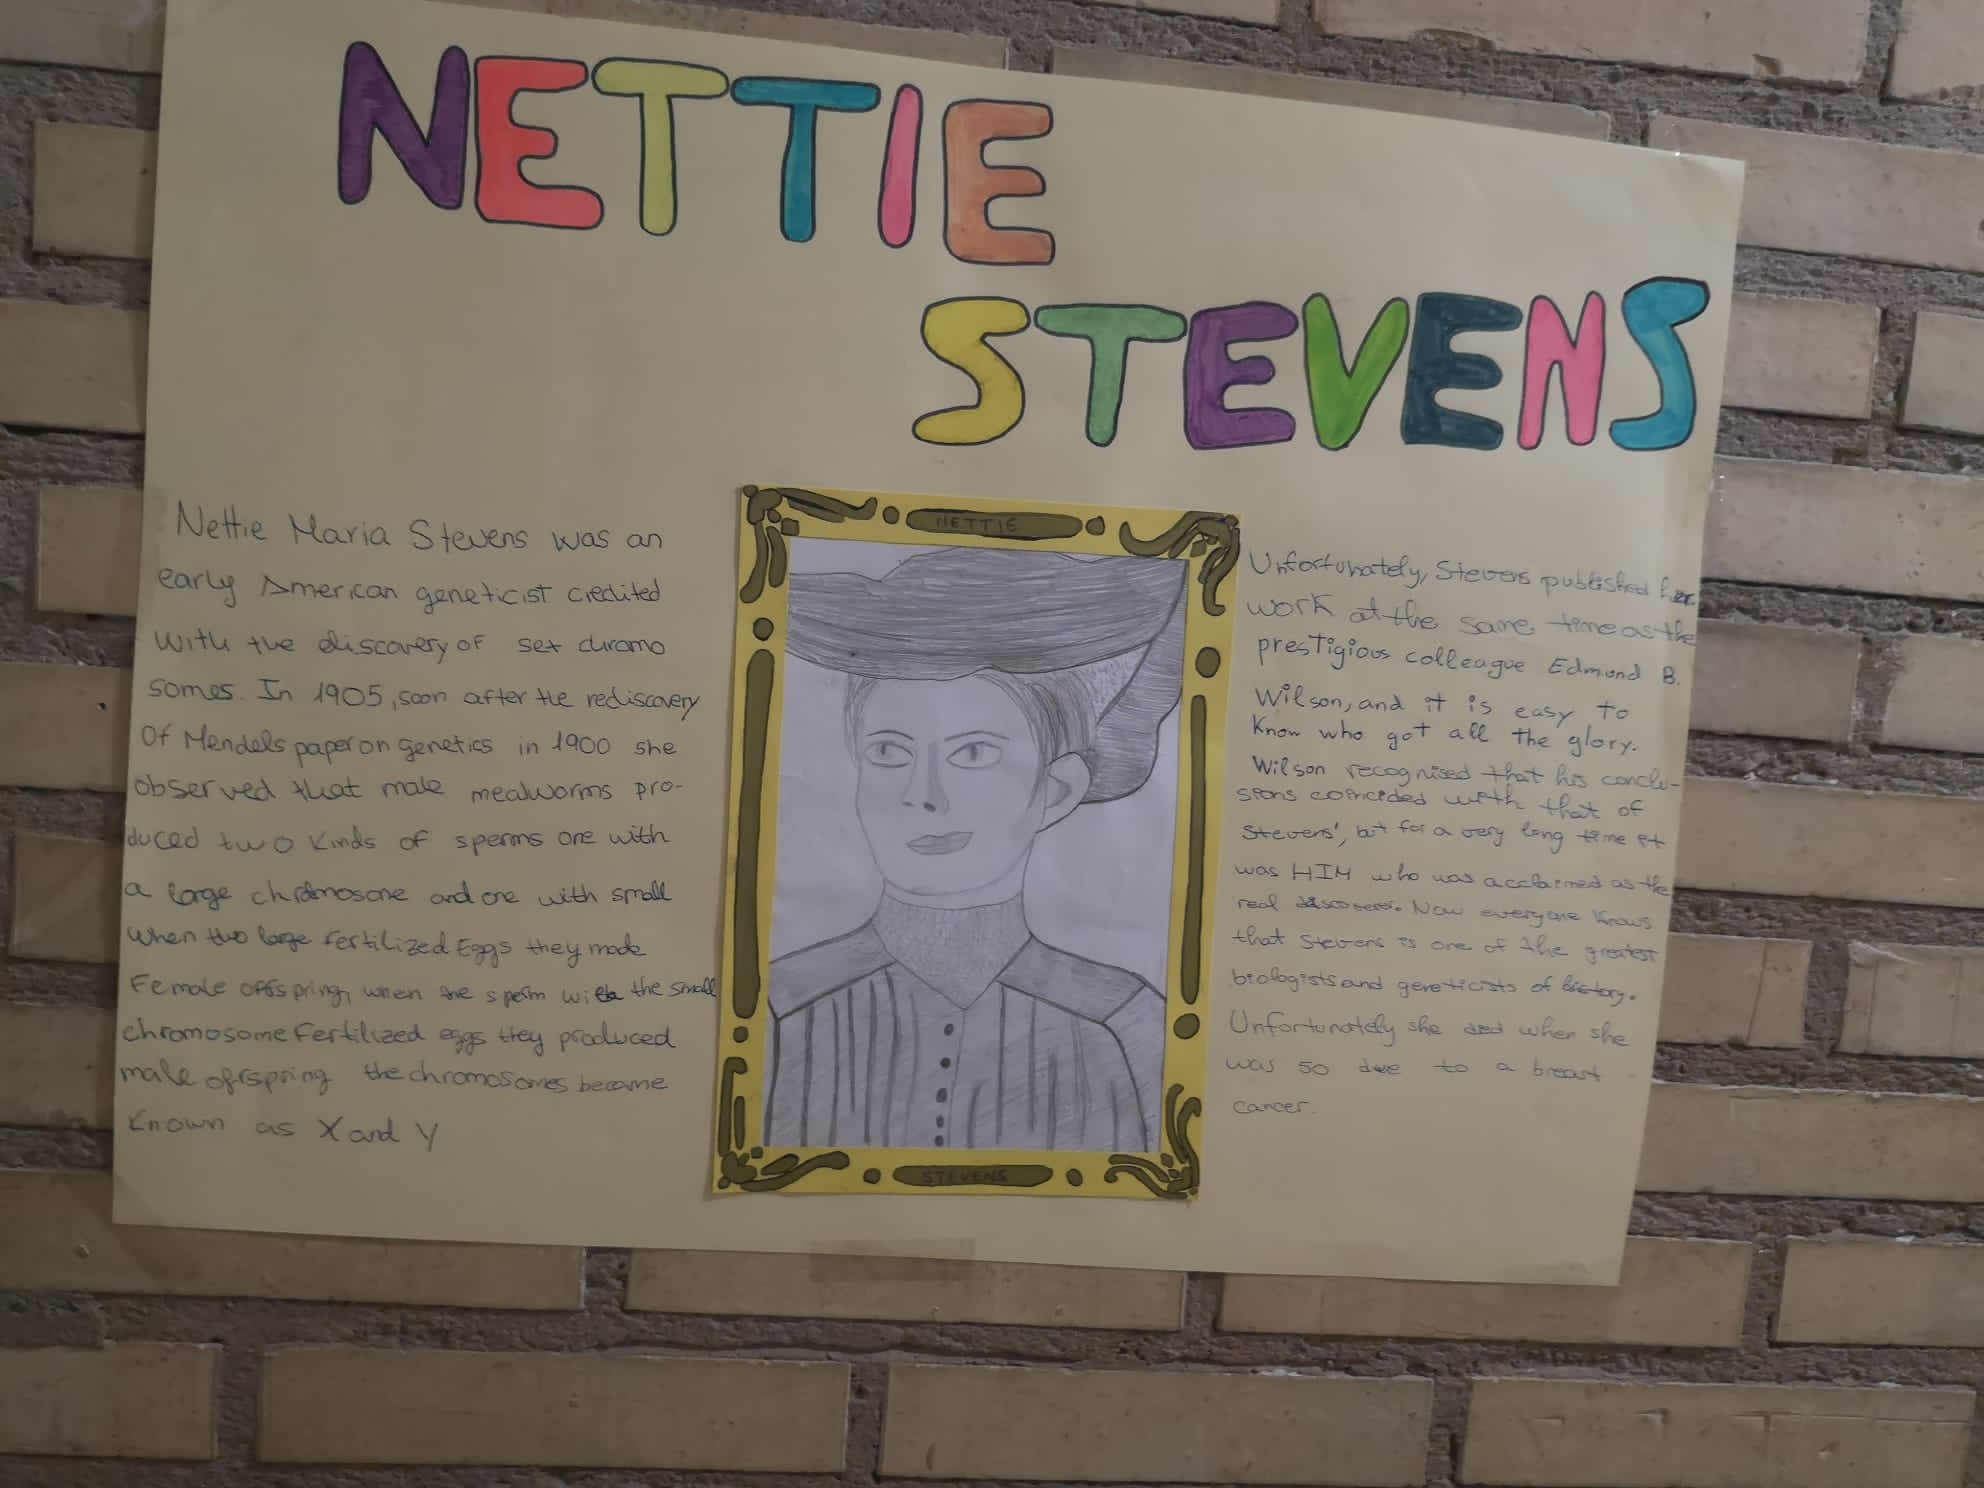 NETTIE
STEVENS
Nettie Maria Stevens was an
early American geneticist credited
with the discovery of sex chromo
somes. In 1905, soon after the rediscovery
Of Mendels paper on genetics in 1900 she
observed that male mealworms pro-
duced two kinds of sperms one with
a large chromosome and one with small
when two large fertilized Eggs they made
Female offspring, when the sperm with the small
chromosome Fertilized eggs they produced
male ofrspring the chromosomes became
Known as X and Y
NETTIE
STEVENS
Unfortunately, Stevens published her
work at the same time as the
prestigious colleague Edmond B.
Wilson, and it is easy to
Know who got all the glory.
Wilson recognised that his conclu-
sions coincided with that of
Stevens', but for a very long time it
was HIM who was acclaimed as the
real discoverer. Now everyone Knows
that Stevens is one of the greatest
biologists and geneticists of history.
Unfortunately she died when she
was 50 due to a breast
cancer.